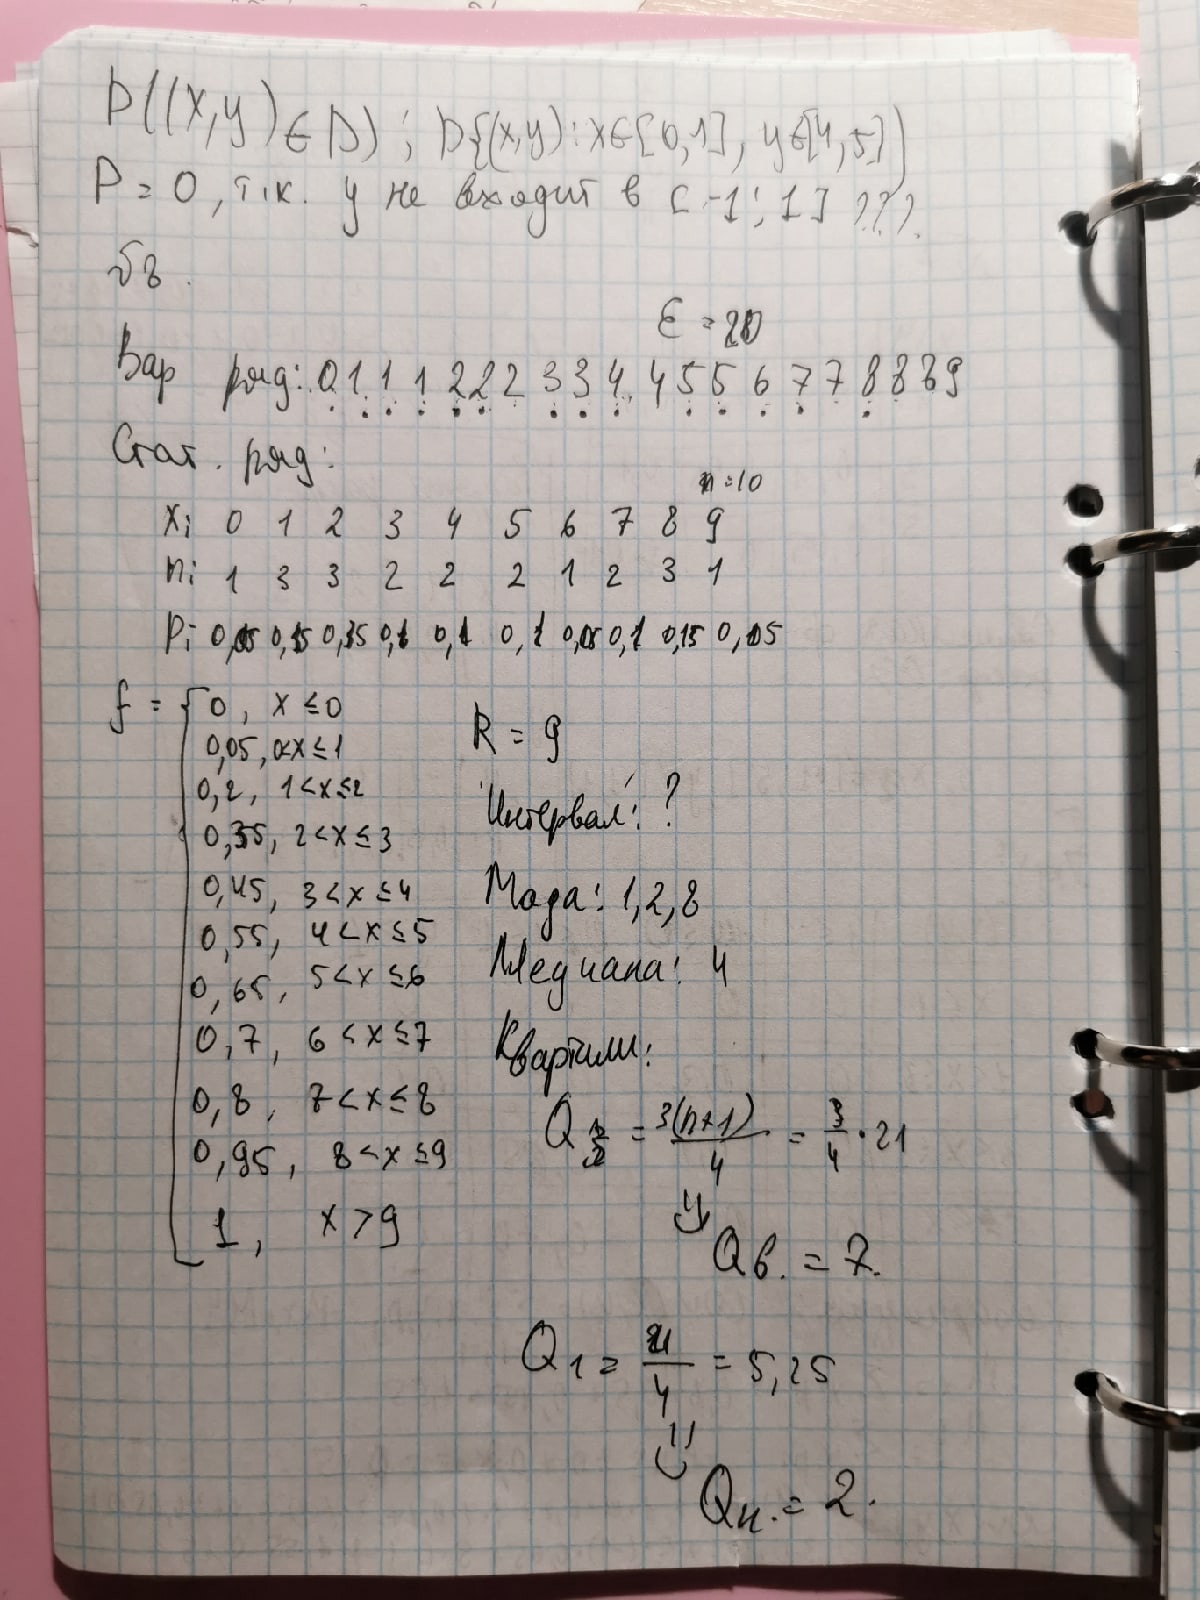 P((x,y) ∈ D) ; D{(x,y): x∈[0,1], y∈[4,5]}
P = 0, т.к. y не входит в [-1;1] ???.
√8.
Σ = 20
Вар ряд: 0 1 1 1 2 2 2 3 3 4 4 5 5 6 7 7 8 8 8 9
Стат. ряд:
n=10
xi 0 1 2 3 4 5 6 7 8 9
ni 1 3 3 2 2 2 1 2 3 1
Pi 0,05 0,15 0,15 0,1 0,1 0,1 0,05 0,1 0,15 0,05
f = { 0, x ≤ 0
0,05, 0<x≤1
0,2, 1<x≤2
0,35, 2<x≤3
0,45, 3<x≤4
0,55, 4<x≤5
0,65, 5<x≤6
0,7, 6<x≤7
0,8, 7<x≤8
0,95, 8<x≤9
1, x>9
R = 9
Интервал: ?
Мода: 1,2,8
Медиана: 4
Квартили:
Q = 3(n+1)/4 = 3/4 · 21
⇓
Qв. = 7.
Q1 = 21/4 = 5,25
⇓
Qн. = 2.